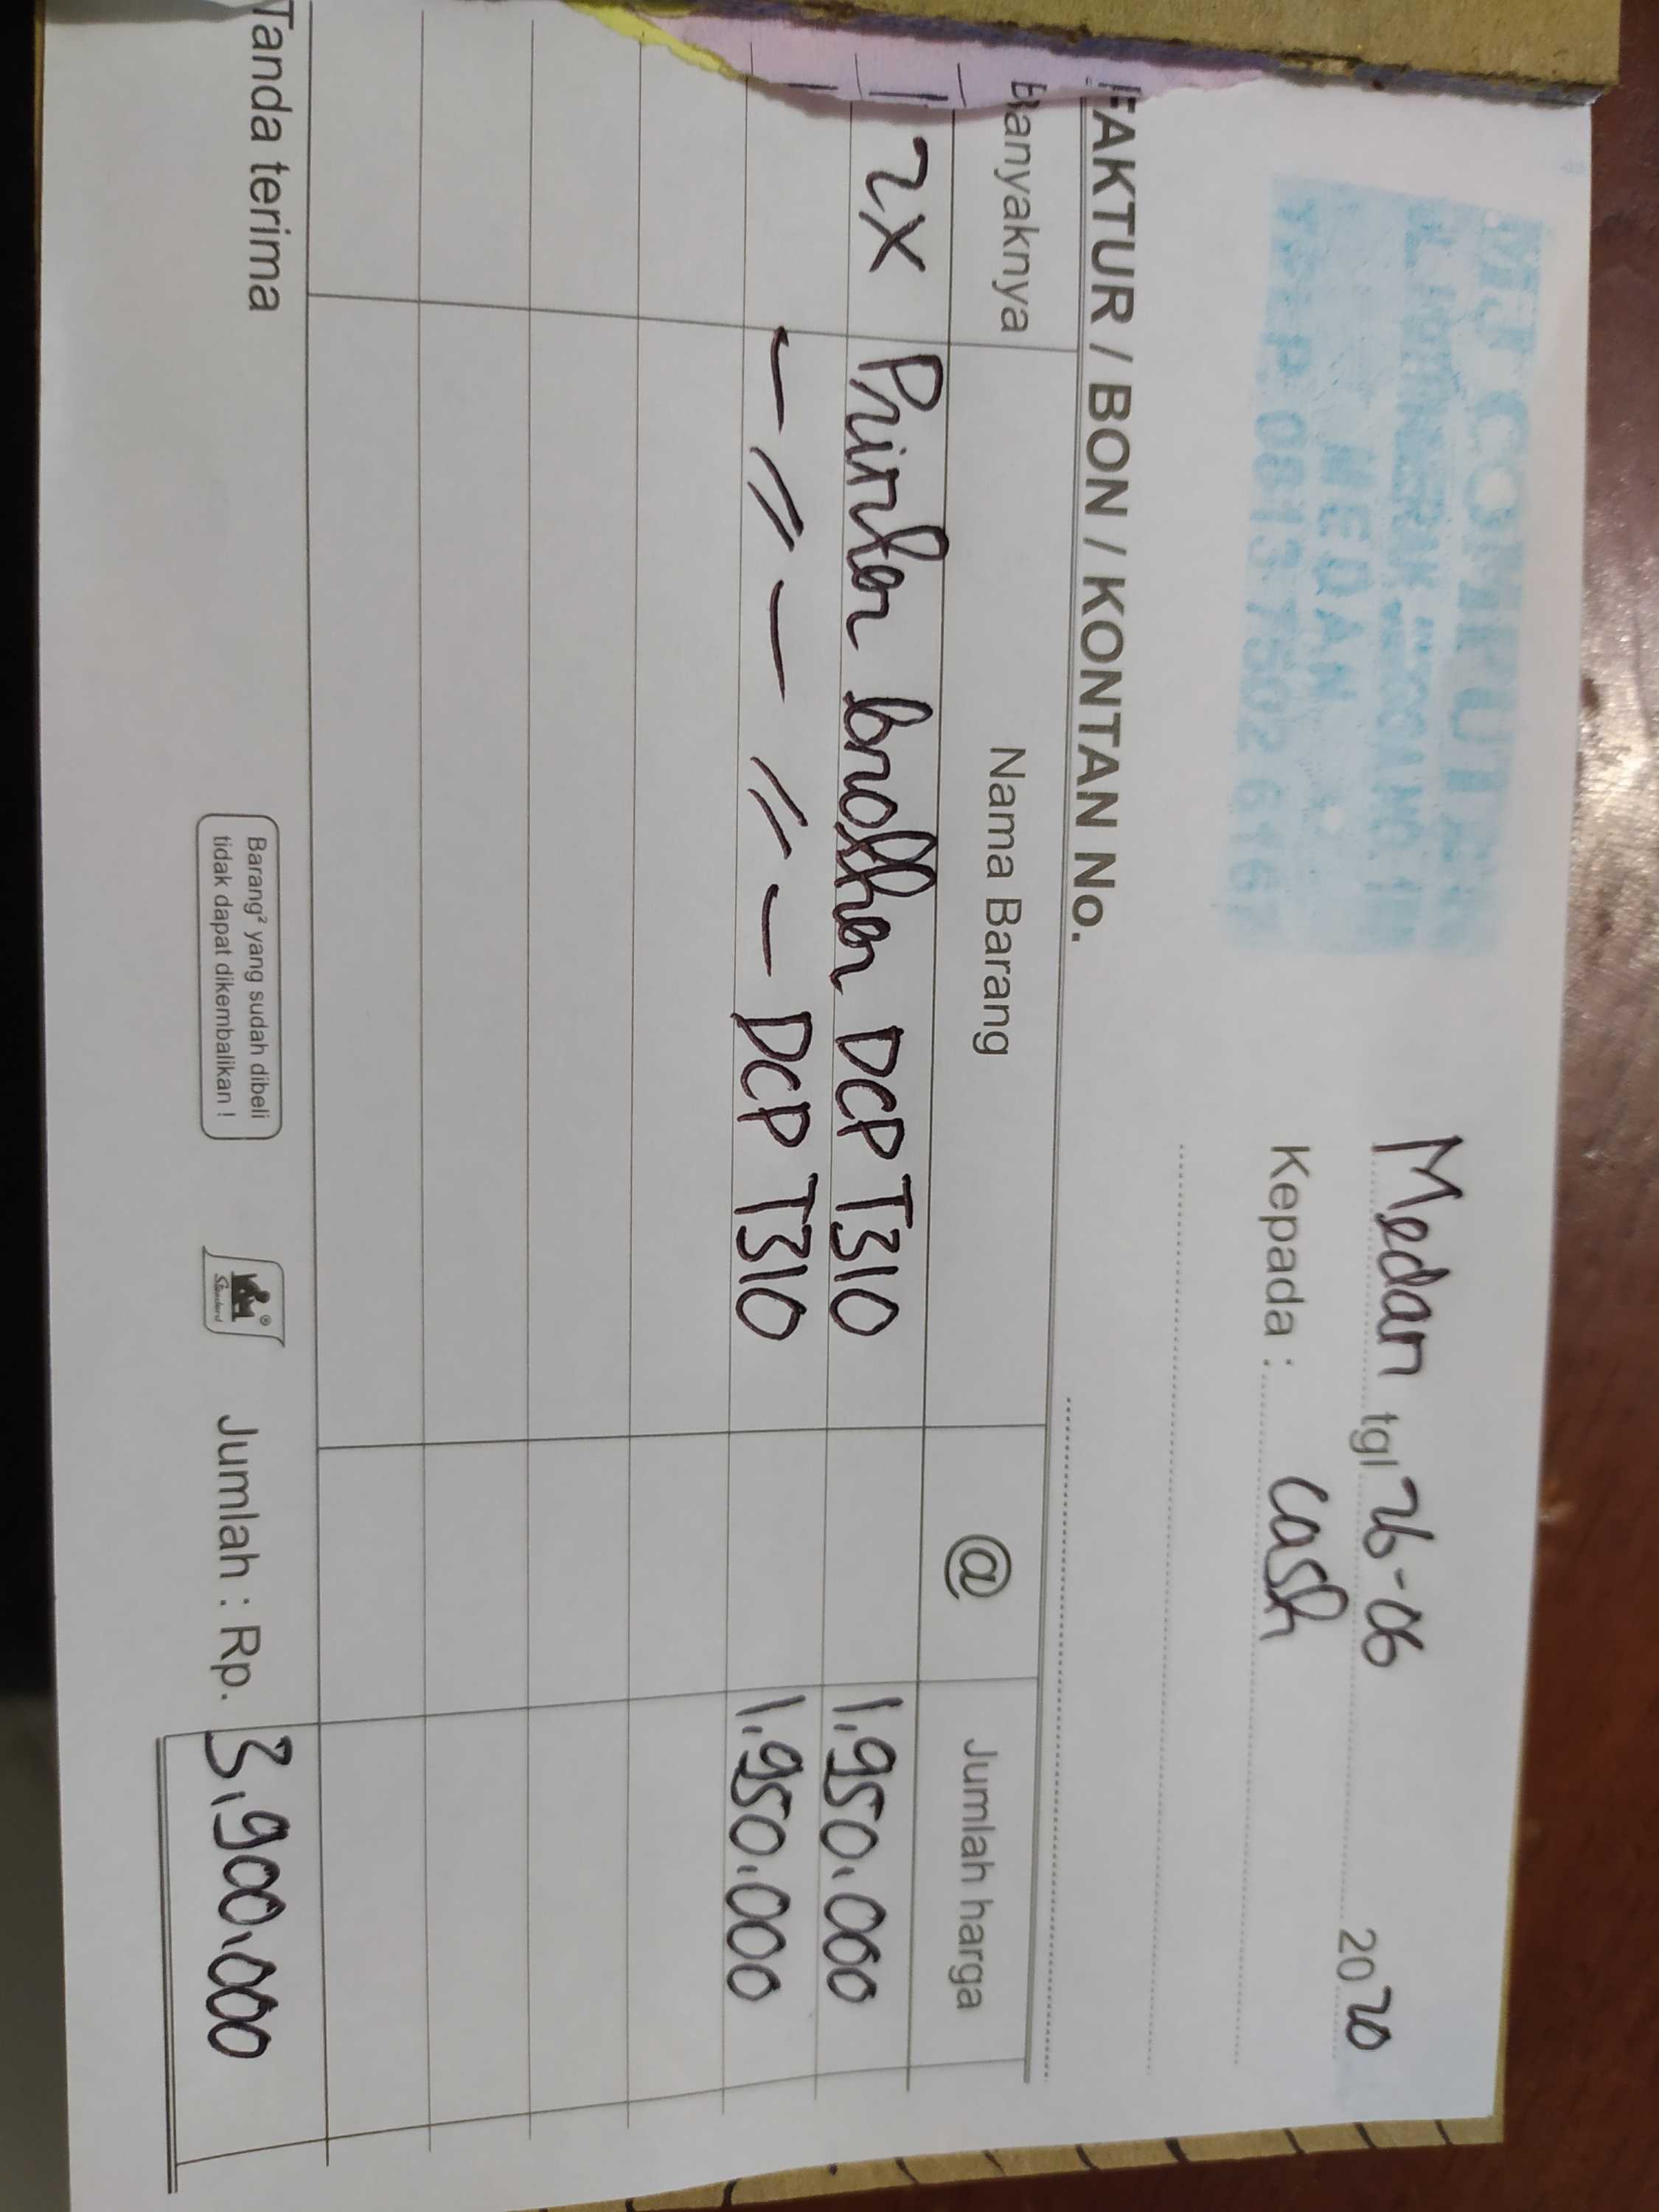 MJT COMPUTER
MEDAN
TELP. 0813 7502 6167
Medan tgl 26-06 2020
Kepada : Cash
FAKTUR / BON / KONTAN No.
Banyaknya Nama Barang @ Jumlah harga
2X Printer brother DCP T310 1.950.000
— // — // — DCP T310 1.950.000
Tanda terima
Barang² yang sudah dibeli
tidak dapat dikembalikan !
Standard
Jumlah : Rp. 3.900.000